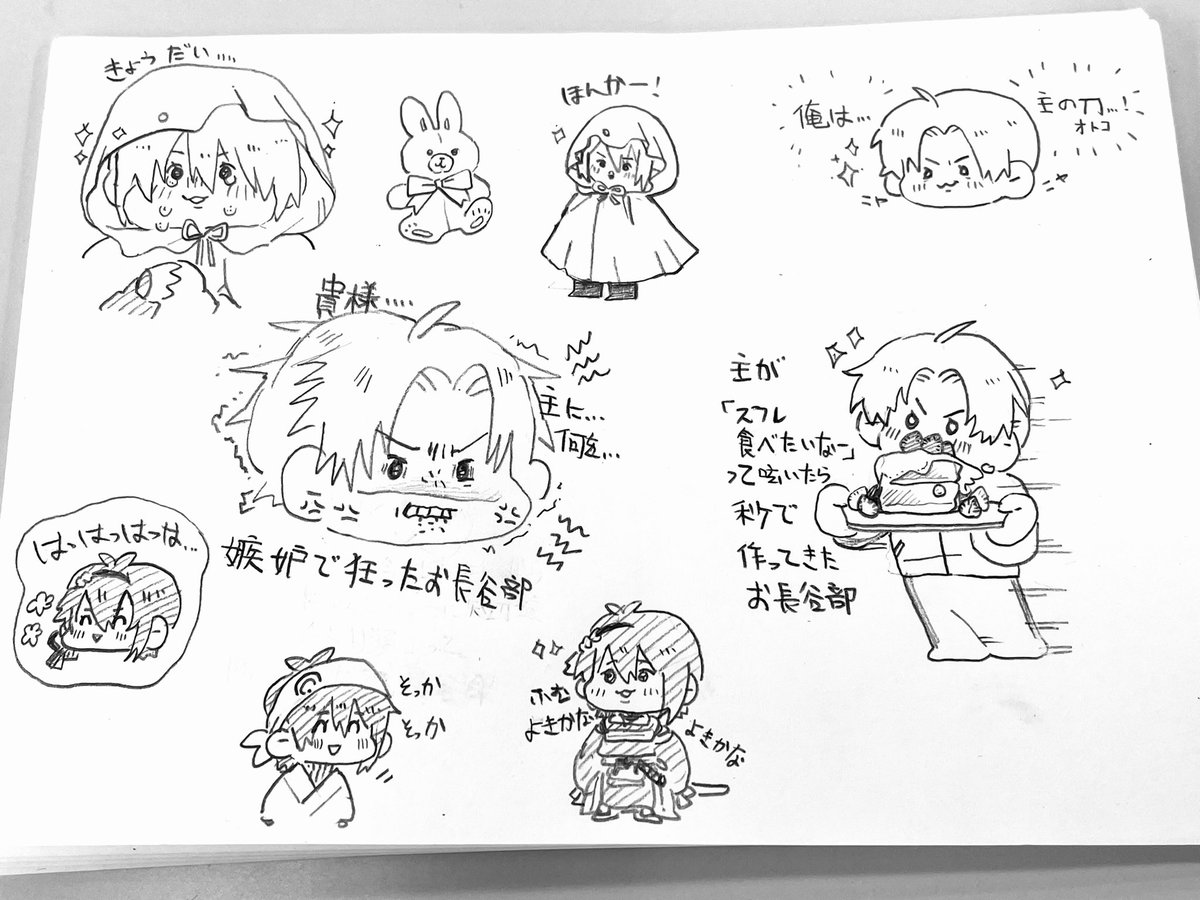 きょうだい....
ほんかー!
俺は...
主の刀...!
オトコ
ニヤ
ニヤ
貴様....
主に...
何を...
嫉妬で狂ったお長谷部
主が
「スフレ
食べたいなー」
って呟いたら
秒で
作ってきた
お長谷部
はっはっはっな...
そっか
そっか
ふむ
よきかな
よきかな